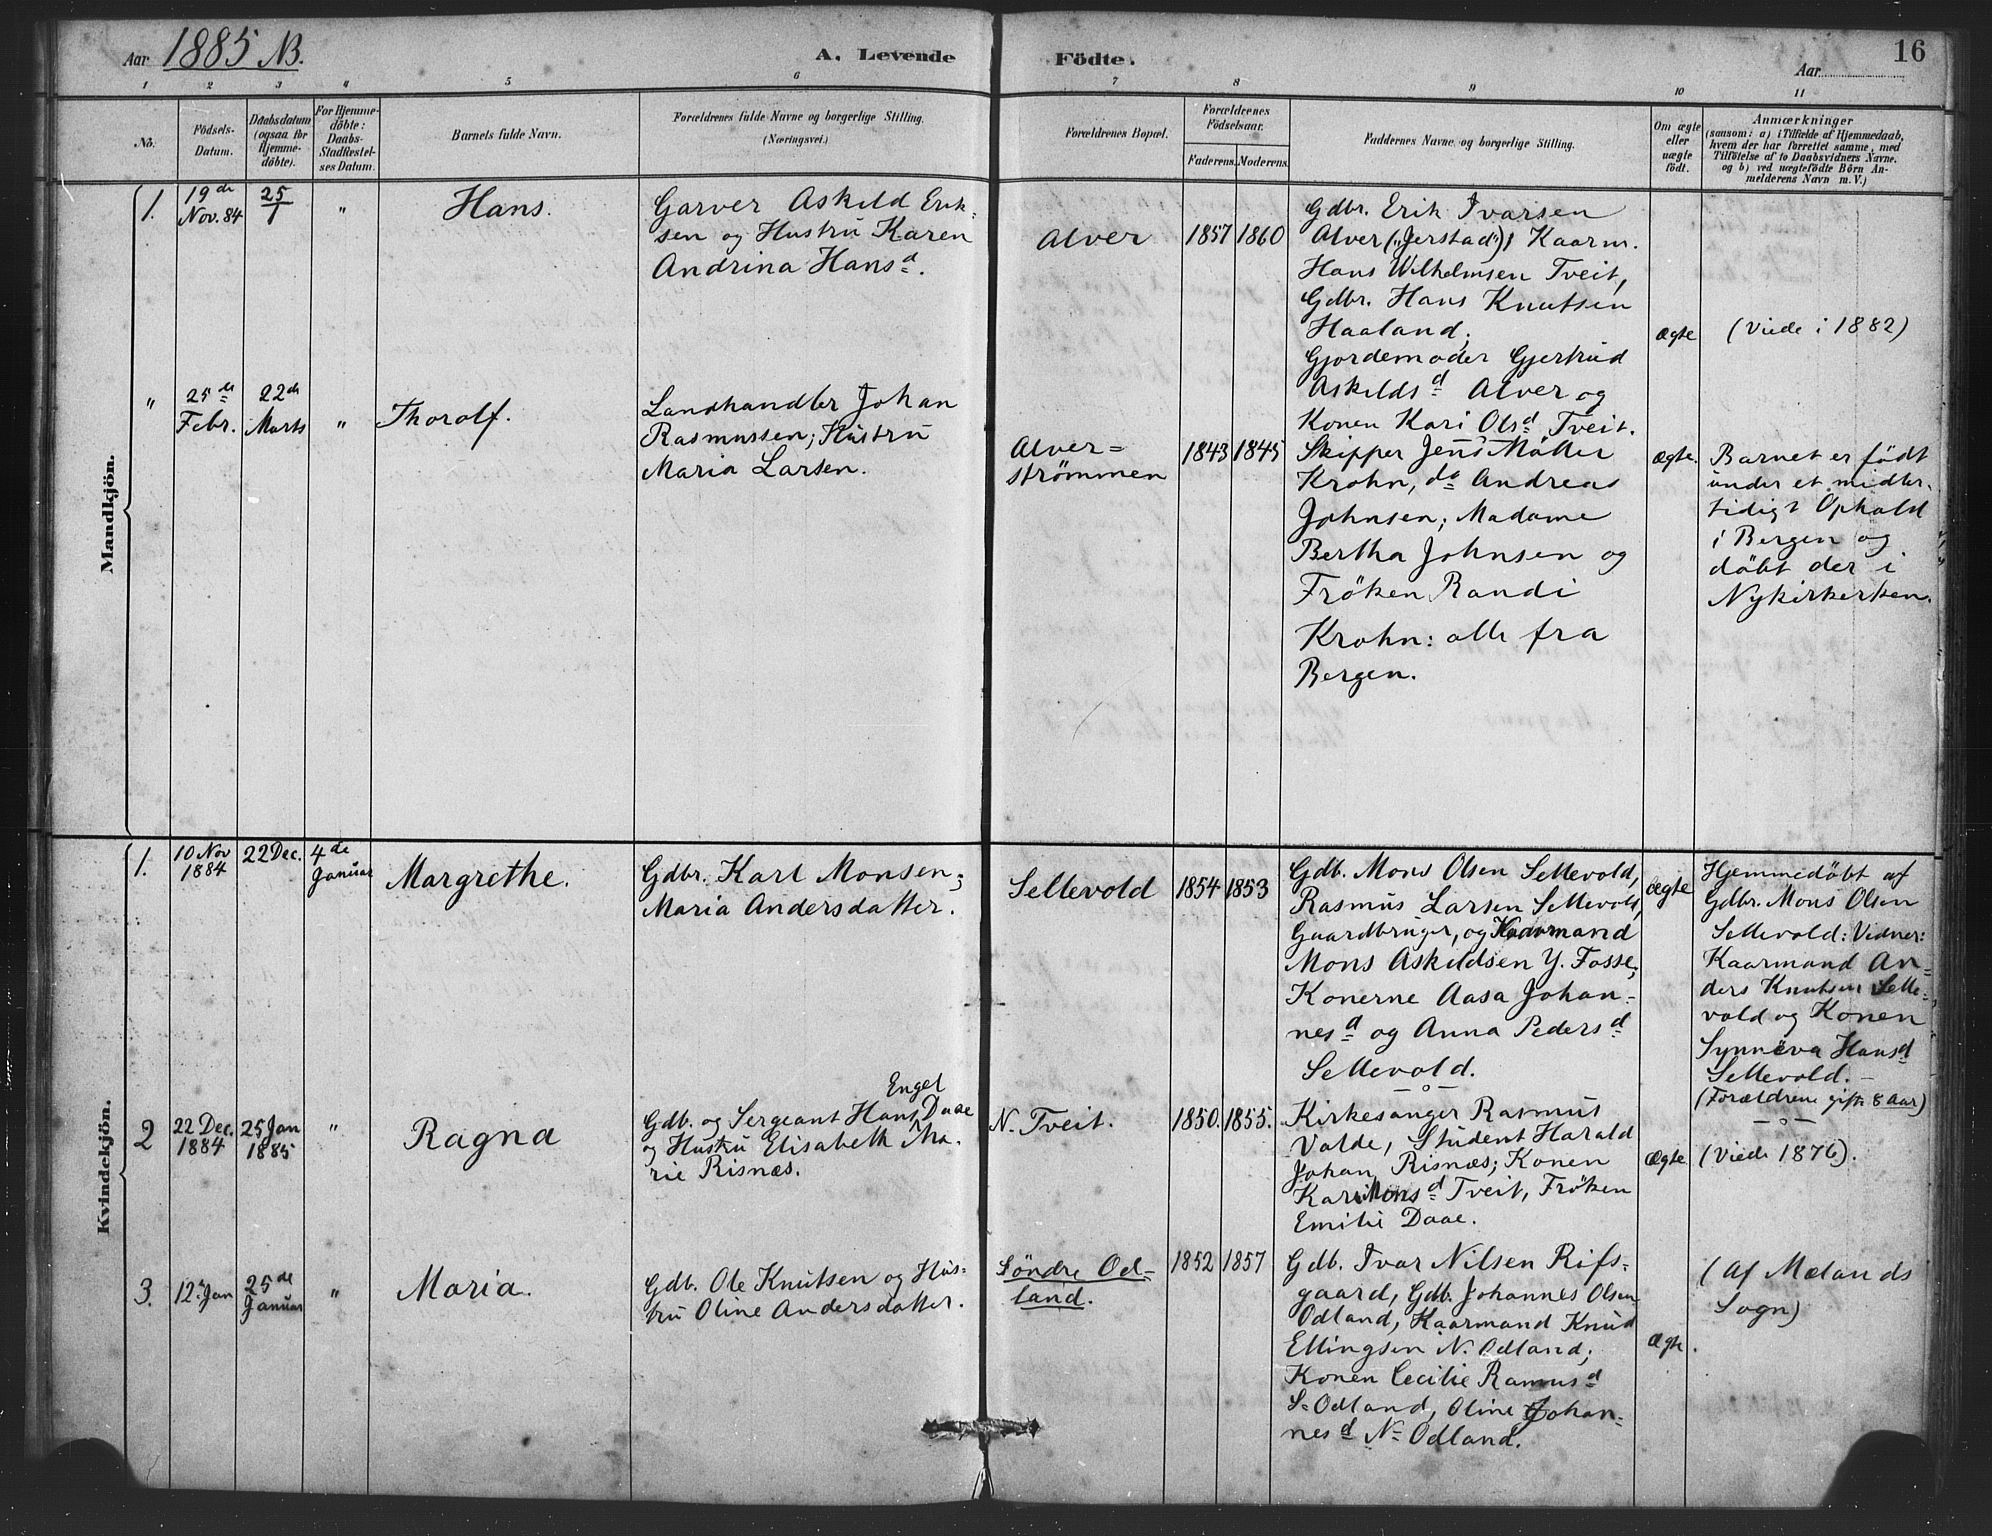 Aar 1885 NB.
A. Levende Födte.
Aar
16
1 2 3 4 5 6 7 8 9 10 11
No.
Födsels-
Datum.
Daabsdatum
(ogsaa for
Hjemme-
döbte).
For Hjemme-
döbte:
Daabs-
Stadfæstel-
ses Datum.
Barnets fulde Navn.
Forældrenes fulde Navne og borgerlige Stilling.
(Næringsvei.)
Forældrenes Bopæl.
Forældrenes
Födselsaar.
Faderens. Moderens.
Faddernes Navne og borgerlige Stilling.
Om ægte
eller
uægte
födt.
Anmærkninger
(saasom: a) i Tilfælde af Hjemmedaab,
hvem der har forrettet samme, med
Tilföielse af to Daabsvidners Navne,
og b) ved uægtefödte Börn An-
melderens Navn m. V.)
Mandkjön.
1.
19de
Nov. 84
25
1
"
Hans.
Garver Askild Erik-
sen og Hustru Karen
Andrina Hansd.
Alver
1857
1860
Gdbr. Erik Ivarsen
Alver („Jerstad”), Kaarm.
Hans Wilhelmsen Tveit,
Gdbr. Hans Knutsen
Haaland;
Gjordemoder Gjertrud
Askildsd Alver og
Konen Kari Olsd Tveit.
ægte
(Viede i 1882)
"
25de
Febr.
22de
Marts
"
Thorolf.
Landhandler Johan
Rasmussen; Hustru
Maria Larsen.
Alver=
strømmen
1843
1845
Skipper Jens Møller
Krohn, do Andreas
Johnsen; Madame
Bertha Johnsen og
Fröken Randi
Krohn: alle fra
Bergen.
ægte.
Barnet er födt
under et midler-
tidigt Ophold
i Bergen og
döbt der i
Nykirkerken.
Kvindekjön.
1.
10 Nov
1884
22 Dec.
4de
Januar
Margrethe.
Gdbr. Karl Monsen;
Maria Andersdatter.
Sellevold
1854
1853
Gdb. Mons Olsen Sellevold,
Rasmus Larsen Sellevold,
Gaardbruger, og Kaarmand
Mons Askildsen Y. Fosse;
Konerne Aasa Johan-
nesd og Anna Pedersd
Sellevold.
ægte
Hjemmedöbt af
Gdbr. Mons Olsen
Sellevold: Vidner:
Kaarmand An=
ders Knutsen Selle=
vold og Konen
Synnöva Hansd
Sellevold.-
(Forældrene gifte 8 Aar)
2
22 Dec.
1884
25 Jan
1885
"
Ragna
Engel
Gdb. og Sergeant Hans Daae
og Hustru Elisabeth Ma-
rie Risnæs.
N. Tveit.
1850.
1855.
Kirkesanger Rasmus
Valde, Student Harald
Johan Risnæs; Konen
Kari Monsd Tveit, Fröken
Emilie Daae.
ægte
(Viede 1876).
3.
12. Jan
25de
Januar
"
Maria.
Gdb. Ole Knutsen og Hus-
tru Oline Andersdatter.
Søndre Od-
land.
1852
1857
Gdb. Ivar Nilsen Rifs-
gaard, Gdb. Johannes Olsen
Odland, Kaarmand Knud
Ellingsen N. Odland;
Konen Cecilie Rasmusd
S. Odland, Oline Johan-
nesd N. Odland.
ægte.
(Af Mælands
Sogn)